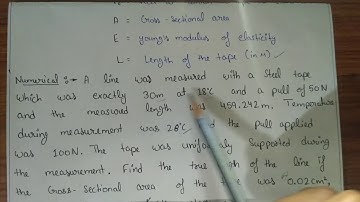 A = Cross-Sectional area
E = young's modulus of elasticity
L = Length of the tape (in M)
Numerical :- A line was measured with a steel tape
which was exactly 30m at 18°C and a pull of 50N
and the measured length was 459.242m. Temperature
during measurement was 28°C and the pull applied
was 100N. The tape was uniformly Supported during
the measurement. Find the true length of the line if
the Cross-Sectional area of the tape was 0.02cm²,